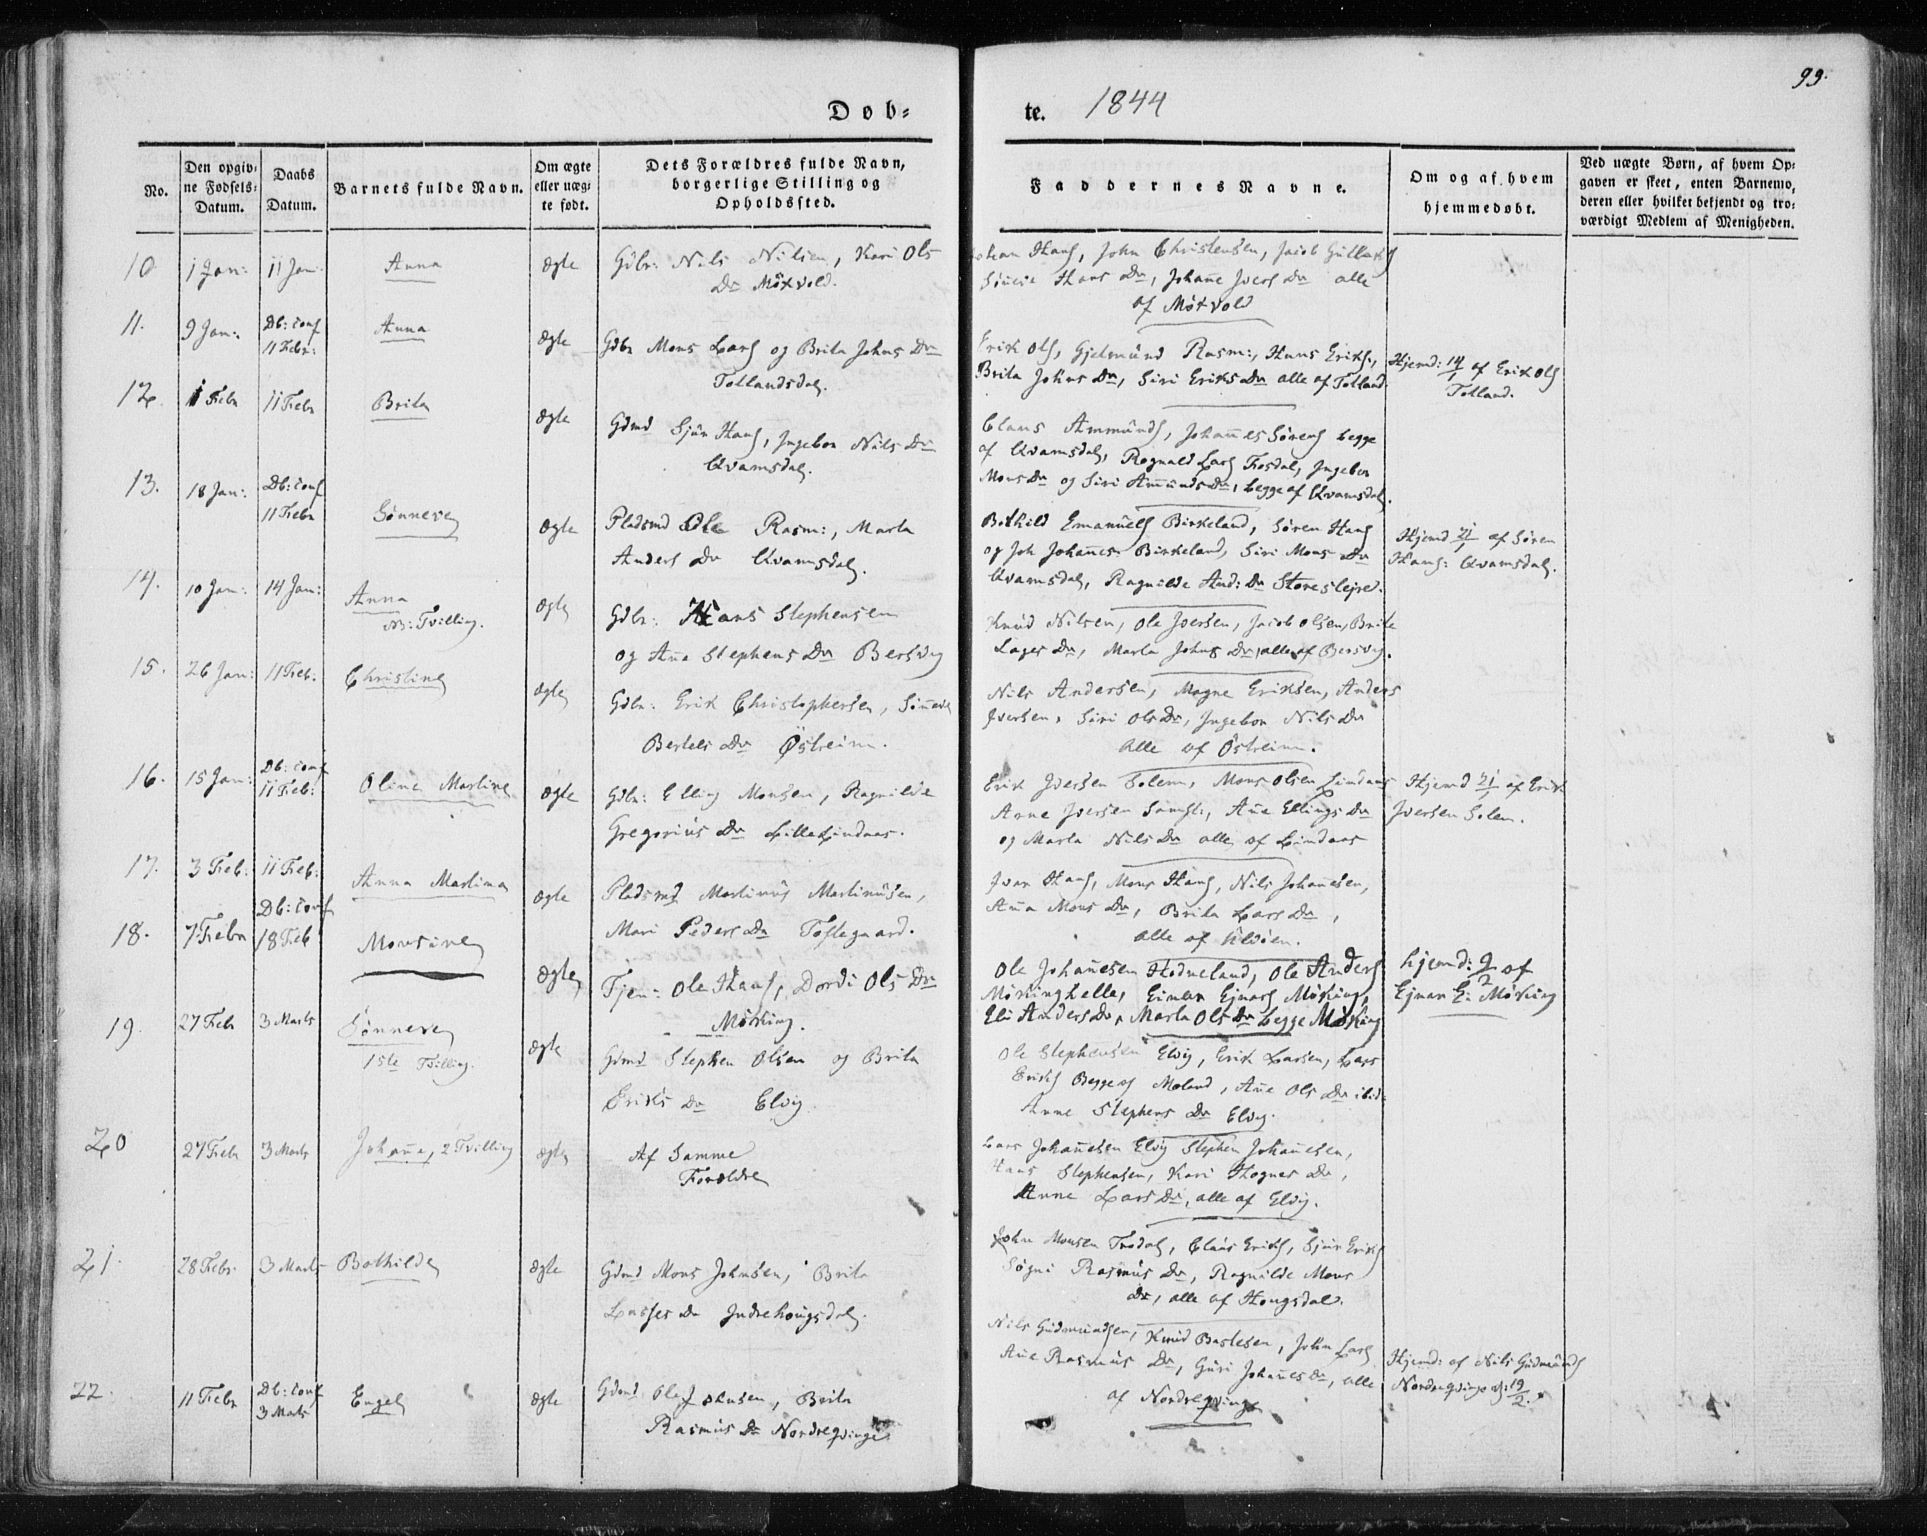 99.
Døb=
te. 1844
No.
Den opgiv=
ne Fødsels=
Datum.
Daabs
Datum.
Barnets fulde Navn.
Om ægte
eller uæg=
te født.
Dets Forældres fulde Navn,
borgerlige Stilling og
Opholdssted.
Faddernes Navne.
Om og af hvem
hjemmedøbt.
Ved uægte Børn, af hvem Op=
gaven er skeet, enten Barnemo,
deren eller hvilket bekjendt og tro=
værdigt Medlem af Menigheden.
10 1 Jan: 11 Jan Anna Ægte Gdbr: Nils Nilsen, Kari Ols
Dr Mötvold.
Hans, John Christensen, Jacob
Hans Dr, Johañe Ivers Dr alle
af Mötvold
11. 9 Jan: Db: conf
11 Febr: Anna Ægte Gdbr Mons Lars og Brita Johns Dr
Totlandsdal
Erik Ols, Gjelmünd Rasm:, Hans Eriks,
Brita Johns Dr, Siri Eriks Dr alle af Totland
Hjemd: 14/1 af Erik Ols
Totland.
12. 1 Febr 11 Febr Brita Ægte Gdmd Sjür Hans, Ingebor Nils Dr
Qvamsdal.
Claus Ammünds, Johañes Sörens begge
af Qvamsdal, Rognald Lars Trosdal, Ingebor
Mons Dr og Siri Amünds Dr, begge af Qvamsdal.
13. 18 Jan: Db: conf
11 Febr Sönneve Ægte Pladsmd Ole Rasm:, Marta
Anders Dr Qvamsdal.
Bothild Emanuels Birkeland, Sören Hans
og Joh Johañes Birkeland, Siri Mons Dr
Qvamsdal, Ragnilde And: Dr Storeslejre.
Hjemd 21/1 af Sören
Hans: Qvamsdal.
14. 10 Jan: 14 Jan: Anna
NB: Tvilling. Ægte Gdbr: Hans Stephensen
og Aña Stephens Dr Bersvig
Knüd Nilsen, Ole Iversen, Jacob Olsen, Brite
Dr, Marta Johns Dr, alle af Bersvig.
15. 26 Jan: 11 Feb: Christine Ægte Gdbr: Erik Christophersen, Siñeve
Bertels Dr Östreim.
Nils Andersen, Magne Eriksen, Anders
Iversen, Siri Ols Dr, Ingebor Nils Dr
alle af Östreim.
16. 15 Jan: Db: conf
11 Feb: Oline Martine Ægte Gdbr: Elling Monsen, Ragnilde
Gregoriüs Dr Lille Lindaas.
Erik Iversen Solem, Mons Olsen Lindaas
Arne Iversen, Aña Ellings Dr
og Marta Nils Dr alle af Lindaas
Hjemd 21/1 af Erik
Iversen Solem.
17. 3 Feb: 11 Feb: Anna Martina Ægte Pladsmd Martinüs Martinüsen,
Mari Peders Dr Toftegaard.
Ivar Hans, Mons Hans, Nils Johañesen,
Aña Mons Dr, Brita Lars Dr,
alle af
18. 7 Febr Db: conf
18 Feb Monsine Ægte Tjen: Ole Hans, Dordi Ols Dr
Mörking.
Ole Johañesen Hodneland, Ole Anders
Mörkinghelle, Einar Ejnars Mörking,
Eli Anders Dr, Marta Ols Dr begge Mörking
hjemd: 9/2 af
Ejnar E: Mörking
19. 27 Febr 3 Marts Sönneve
1ste Tvilling. Ægte Gdmd Stephen Olsen og Brita
Eriks Dr Elvig.
Ole Stephensen Elvig, Erik Larsen, Lars
Eriks Begge af Moland, Añe Ols Dr ibid:
Anne Stephens Dr Elvig.
20 27 Febr 3 Marts Johañe, 2 Tvilling Ægte Af Samme
Forældre
Lars Johañesen Elvig Stephen Johañesen,
Hans Stephensen, Kari Hognes Dr,
Anne Lars Dr, alle af Elvig.
21. 28 Febr. 3 Marts Bothilde Ægte Gdmd Mons Johnsen, Brita
Lasses Dr Indrehougsdal.
John Monsen Trodal, Claüs Eriks, Sjür Eriks
Sögni Rasmüs Dr, Ragnilde Mons
Dr, alle af Hougsdal.
22. 11 Febr Db: conf
3 Marts Engel Ægte Gdmd Ole Johnsen, Brita
Rasmüs Dr Nordreqvinge
Nils Güdmündsen, Knüd Bastesen, John Lars
Añe Rasmüs Dr, Güri Johañes Dr, alle
af Nordreqvinge
Hjemd: af Nils Güdmünds
Nordreqvinge d: 19/2.